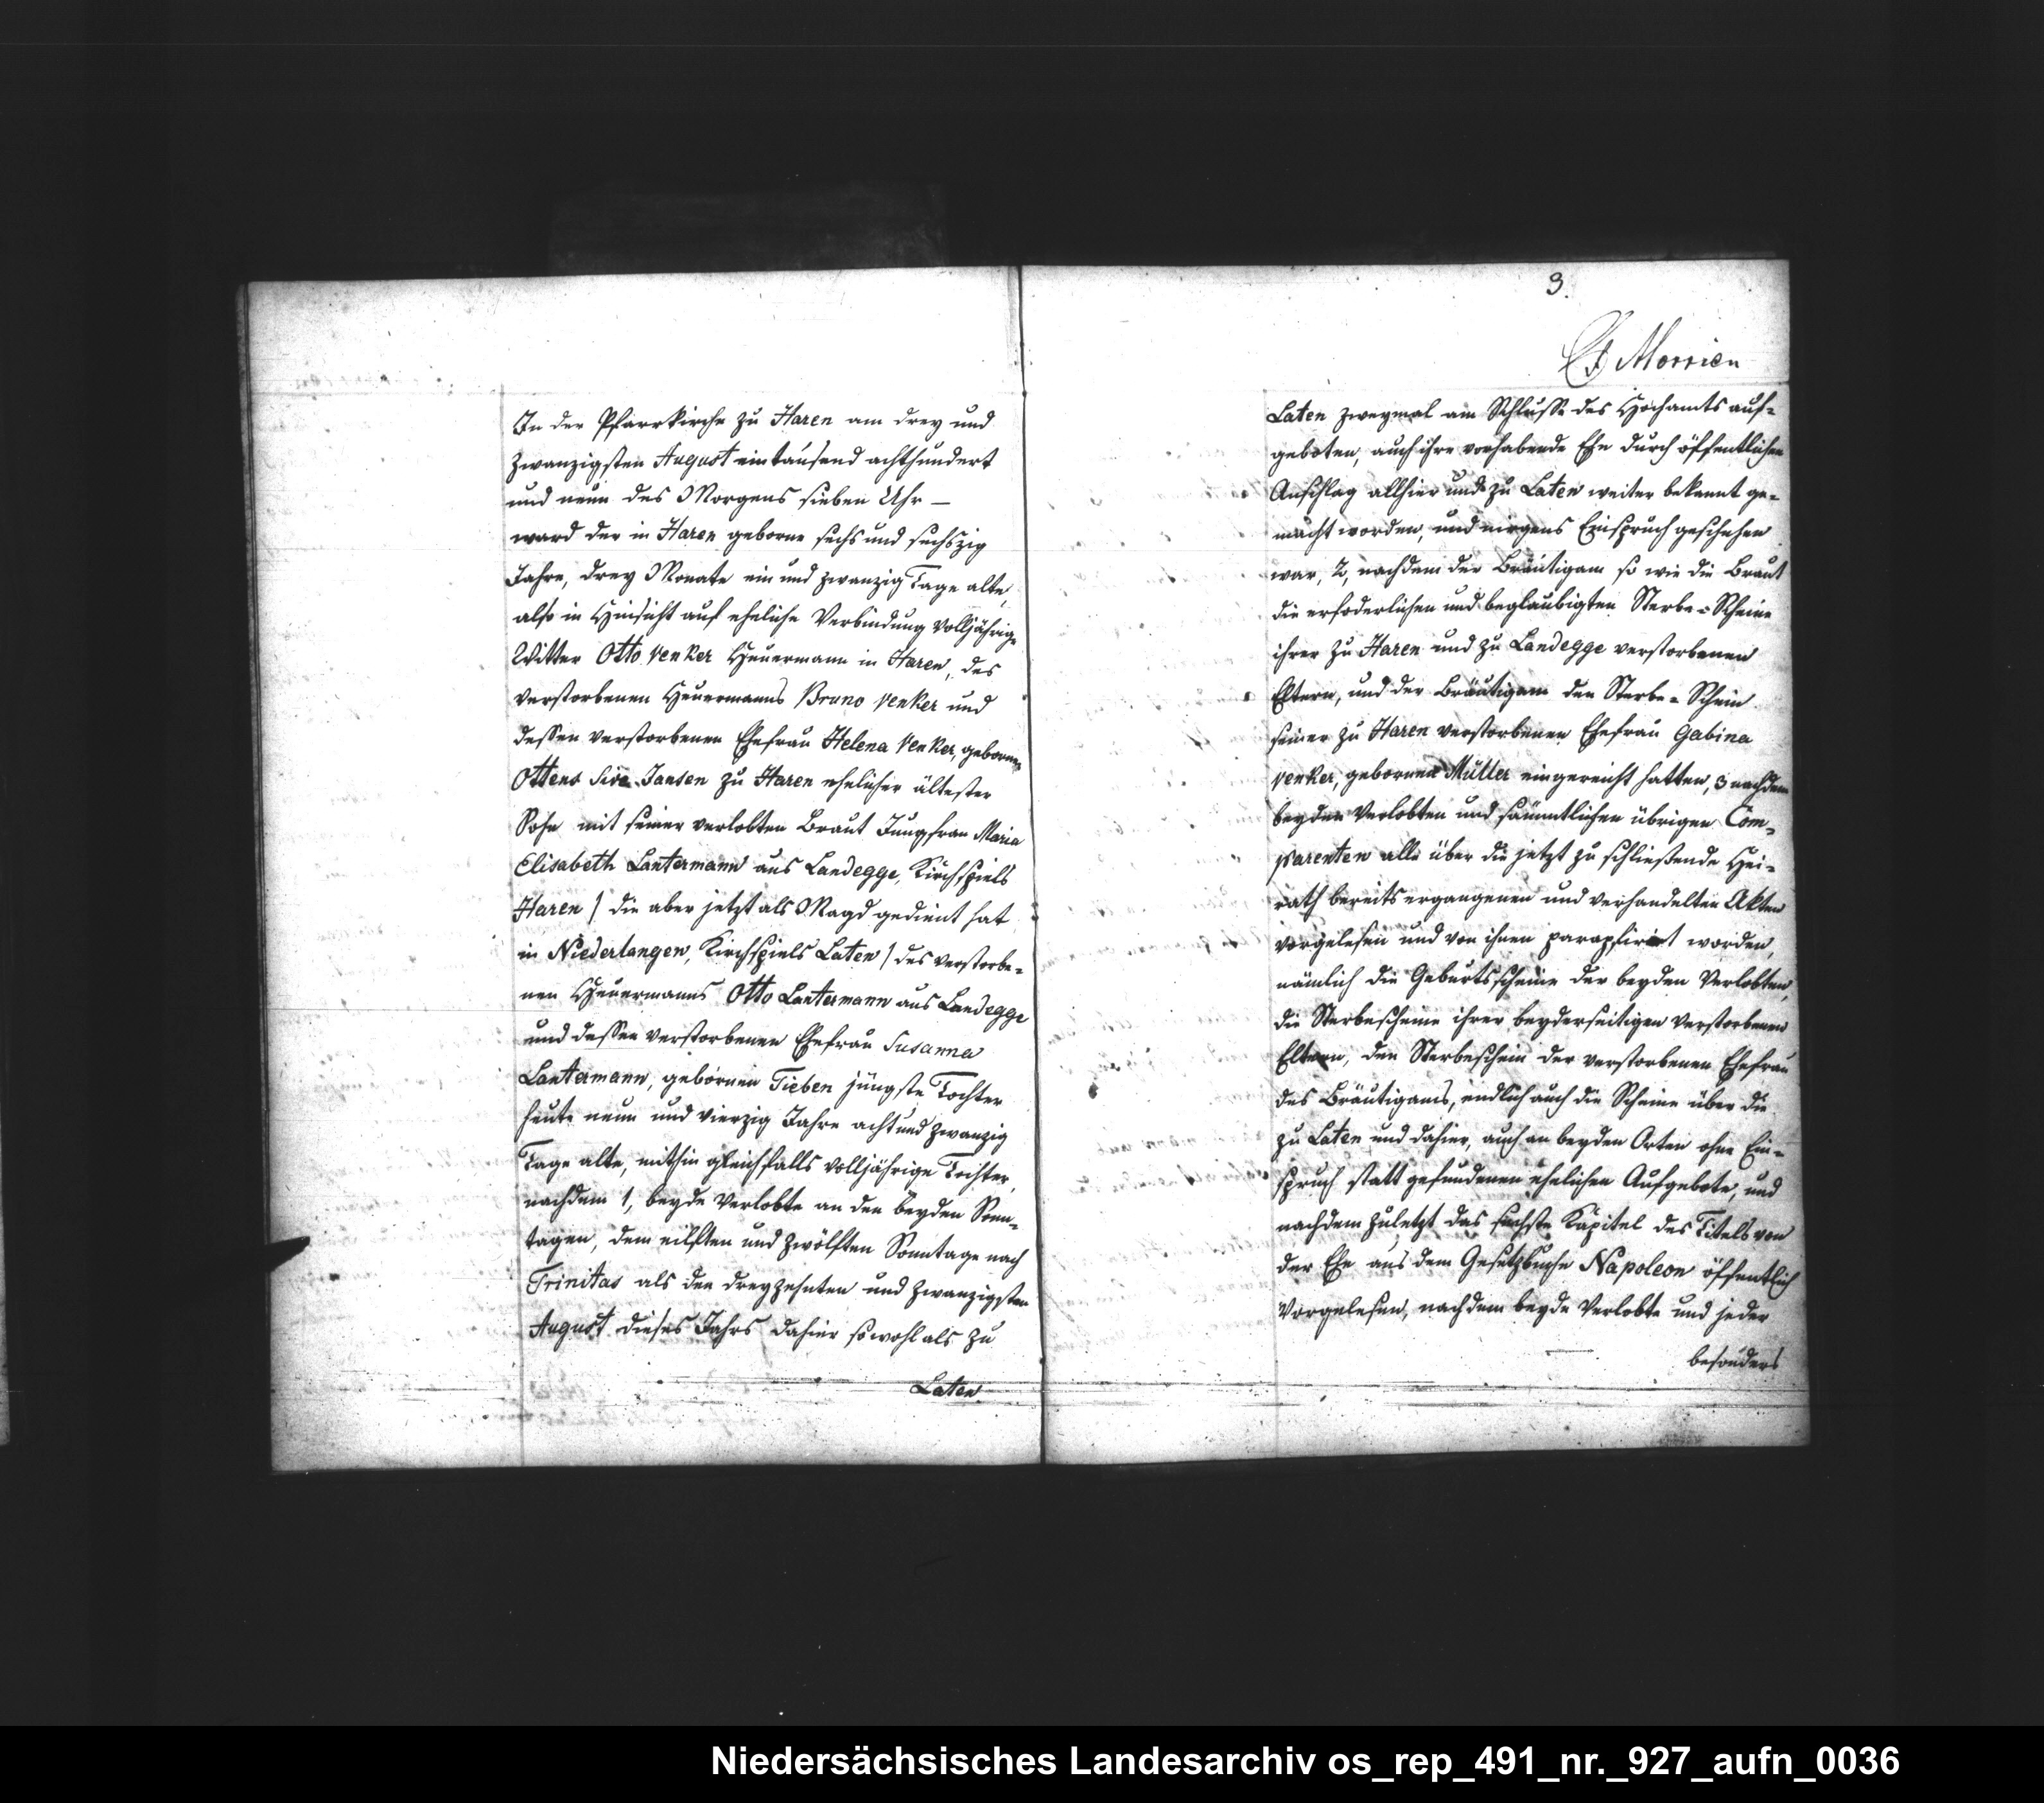 In der Pfarrkirche zu Haren am drey und
zwanzigsten August eintausend achthundert
und neun des Morgens sieben Uhr —
ward der in Haren geborne sechs und sechszig
Jahre, drey Monate ein und zwanzig Tage alte,
also in Hinsicht auf eheliche Verbindung volljährige
Witter Otto Venker Heuermann in Haren, des
verstorbenen Heuermanns Bruno Venker und
dessen verstorbenen Ehefrau Helena Venker, gebornen
Ottens sive Jansen zu Haren ehelicher ältester
Sohn mit seiner verlobten Braut Jungfrau Maria
Elisabeth Lantermann aus Landegge, Kirchspiels
Haren / die aber jetzt als Magd gedient hat
in Niederlangen, Kirchspiels Laten / des verstorbe-
nen Heuermanns Otto Lantermann aus Landegge
und dessen verstorbenen Ehefrau Susanna
Lantermann, gebornen Tieben jüngste Tochter
heute neun und vierzig Jahre acht und zwanzig
Tage alte, mithin gleichfalls volljährige Tochter,
nachdem 1, beyde Verlobte an den beyden Sonn-
tagen, dem eilften und zwölften Sonntage nach
Trinitas als den dreyzehnten und zwanzigsten
August dieses Jahrs dahier sowohl als zu
Laten
3.
Morrien
Laten zweymal am Schlusse des Hochamts auf-
geboten, auch ihre vorhabende Ehe durch öffentlichen
Anschlag allhier und zu Laten weiter bekannt ge-
macht worden, und nirgens Einspruch geschehen
war, 2, nachdem der Bräutigam so wie die Braut
die erfoderlichen und beglaubigten Sterbe-Scheine
ihrer zu Haren und zu Landegge verstorbenen
Eltern, und der Bräutigam den Sterbe-Schein
seiner zu Haren verstorbenen Ehefrau Gabina
Venker, gebornen Müller eingereicht hatten, 3 nachdem
beyden Verlobten und sämmtlichen übrigen Com-
parenten alle über die jetzt zu schließende Hei-
rath bereits ergangenen und verhandelten Akten
vorgelesen und von ihnen paraphirt worden,
nämlich die Geburtsscheine der beyden Verlobten,
die Sterbescheine ihrer beyderseitigen verstorbenen
Eltern, den Sterbeschein der verstorbenen Ehefrau
des Bräutigams, endlich auch die Scheine über die
zu Laten und dahier, auch an beyden Orten ohne Ein-
spruch statt gefundenen ehelichen Aufgebote, und
nachdem zuletzt das sechste Kapitel des Titels von
der Ehe aus dem Gesetzbuche Napoleon öffentlich
vorgelesen, nachdem beyde Verlobte und jeder
besonders
Niedersächsisches Landesarchiv os_rep_491_nr._927_aufn_0036